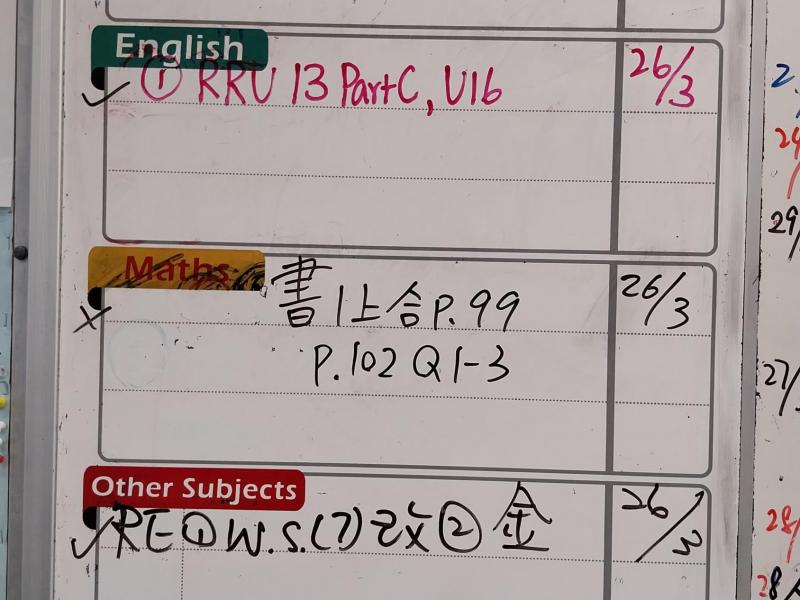 English
① RRU 13 Part C, U16 26/3
Maths
書1上合P.99 26/3
P.102 Q1-3
Other Subjects
RE ① W.S.(7)改 ② 金 26/3
2
24
29/
27/
28/
28